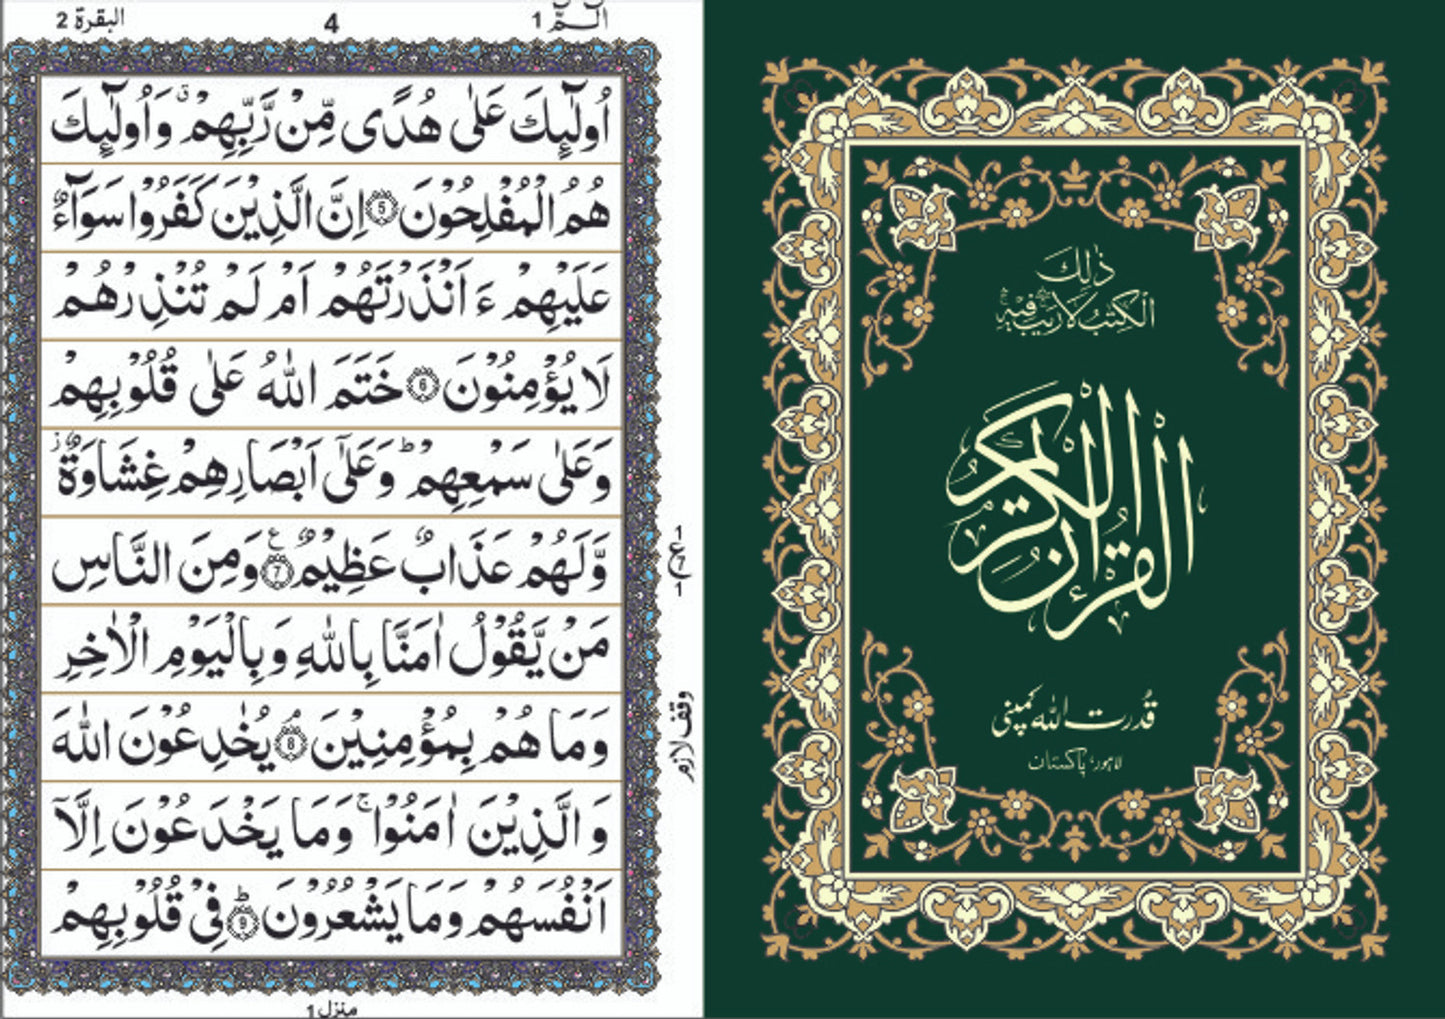 البقرة 2
4
الٓمّٓ 1
اُولٰٓئِكَ عَلٰى هُدًى مِّنْ رَّبِّهِمْ ۗ وَاُولٰٓئِكَ
هُمُ الْمُفْلِحُوْنَ 5 اِنَّ الَّذِيْنَ كَفَرُوْا سَوَآءٌ
عَلَيْهِمْ ءَ اَنْذَرْتَهُمْ اَمْ لَمْ تُنْذِرْهُمْ
لَا يُؤْمِنُوْنَ 6 خَتَمَ اللّٰهُ عَلٰى قُلُوْبِهِمْ
وَعَلٰى سَمْعِهِمْ ؕ وَعَلٰٓى اَبْصَارِهِمْ غِشَاوَةٌ ز
وَّلَهُمْ عَذَابٌ عَظِيْمٌ 7 ع وَمِنَ النَّاسِ
مَنْ يَّقُوْلُ اٰمَنَّا بِاللّٰهِ وَبِالْيَوْمِ الْاٰخِرِ
وَمَا هُمْ بِمُؤْمِنِيْنَ ۘ 8 يُخٰدِعُوْنَ اللّٰهَ
وَالَّذِيْنَ اٰمَنُوْا ۚ وَمَا يَخْدَعُوْنَ اِلَّآ
اَنْفُسَهُمْ وَمَا يَشْعُرُوْنَ ؕ 9 فِيْ قُلُوْبِهِمْ
1
ع
1
وقف لازم
منزل 1
ذٰلِكَ
الْكِتٰبُ لَا رَيْبَ ۛ فِيْهِ ۛ
الْقُرْآنُ الْكَرِيْمُ
قُدرت اللہ کمپنی
لاہور، پاکستان